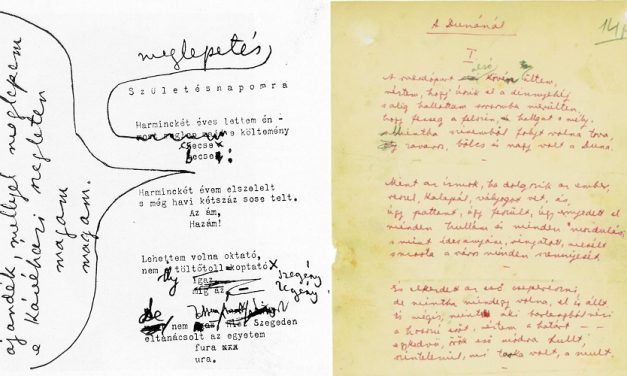 ajándék, mellyel meglepem
e kávéházi szegleten
magam
magam.
meglepetés
Születésnapomra
Harminckét éves lettem én -
e költemény
csecse
becse:
Harminckét évem elszelelt
s még havi kétszáz sose telt.
Az ám,
Hazám!
Lehettem volna oktató,
nem ily töltőtoll koptató
szegény
legény
De nem Szegeden
eltanácsolt az egyetem
fura
ura.
A Dunánál
I
A rakodópart alsó kövén ültem,
néztem, hogy úszik el a dinnyehéj
alig hallottam sorsomba merülten,
hogy fecseg a felszin, s hallgat a mély.
Mintha szivemből folyt volna tova,
zavaros, bölcs és nagy volt a Duna.
Mint az izmok, ha dolgozik az ember,
reszel, kalapál, vályogot vet, ás,
úgy pattant, úgy feszült, úgy ernyedett el
minden hullám és minden mozdulás
s mint édesanyám, ringatott, mesélt
s mosta a város minden szennyesét.
És elkezdett az eső cseperészni,
de mintha mindegy volna, el is állt
És mégis, mint aki barlangból nézi
a hosszú esőt, néztem a határt - -
egykedvü, örök eső módra hullt,
szintelenül, mi tarka volt, a mult.